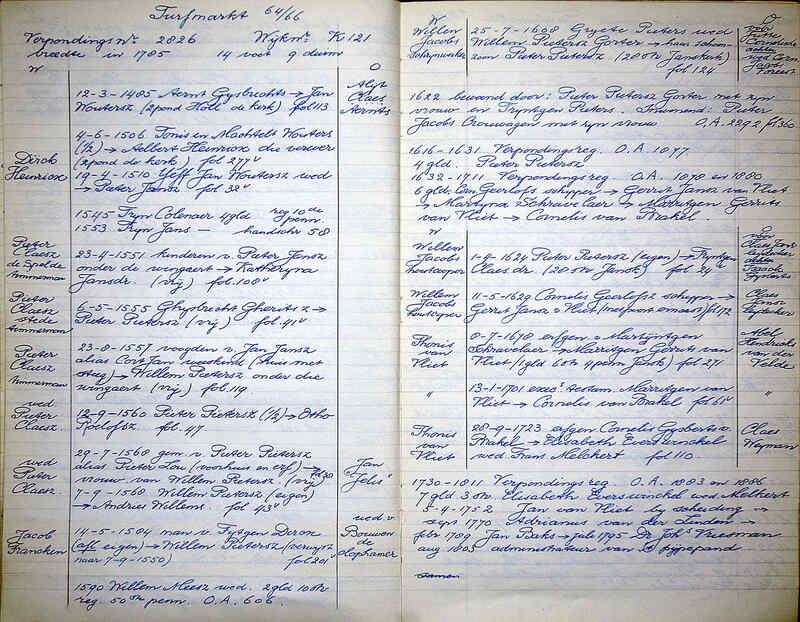 Turfmarkt 64/66
Verpondings No. 2826 Wykno. K 121
breedte in 1785 14 voet 9 duim
W O
12-3-1485 Aernt Gysbrechts → Jan
Woutersz (2 pond Holl de kerk) fol 113
Alyt
Claes
Aernts
4-6-1506 Tonis en Machtelt Wouters
(½) → Aelbert Heinricx die verwer
(2 pond de kerk) fol 277v
Dirck
Heinricx
19-4-1510 Yeff Jan Woutersz wed
→ Pieter Jansz fol 32v
1545 Tryn Colenaer 4 gld reg 10de penn.
1553 Tryn Jans — handschr 58
Pieter
Claesz
de
timmerman
23-4-1551 kinderen v. Pieter Jansz
onder de wingaert → Katheryna
Jansdr. (vrij) fol. 108v
Pieter
Claesz
timmerman
6-5-1555 Ghysbrecht Gheritsz →
Pieter Pietersz (vrij) fol. 41v
Pieter
Claesz
timmerman
23-8-1557 voogden v. Jan Jansz
alias Cort Jan (huis met
steeg) → Willem Pietersz onder die
wingaert (vrij) fol. 119
wed
Pieter
Claesz.
12-9-1560 Pieter Pietersz (½) → Otho
Roelofsz. fol. 47
wed
Pieter
Claesz.
29-7-1568 gem v. Pieter Pietersz
alias Pieter Lou (voorhuis en erf) →
vrouw van Willem Pietersz (vrij) fol 38
7-9-1568 Willem Pietersz (eigen)
→ Andries Willems. fol 43v
Jan
"Jelis"
Jacob
Francken
14-5-1584 man v. Fytgen Dircx
(afl eigen) → Willem Pietersz (verwijst
naar 7-9-1550) fol 201v
wed. v.
Bouwen
de
slophamer
1590 Willem Meesz wed. 2 gld 10 st
reg. 50ste penn. O.A. 606.
W O
Willem
Jacobs
Schrijnwerker
25-7-1608 Gryete Pieters wed
Willem Pietersz Gorter → haar schoon-
zoon Pieter Pietersz (20 st Janskerk)
fol 124
Jacob
Foreest
1622 bewoond door: Pieter Pietersz Gorter met zyn
vrouw en Tryntgen Pieters. Inwonend: Pieter
Jacobs Crouwagen met zyn vrouw O.A. 2292 fol 360
1616-1631 Verpondingsreg. O.A. 1077
4 gld. Pieter Pietersz
1632-1711 Verpondingsreg O.A. 1078 en 1080
6 gld: Corn Geerlofs schipper → Gerrit Jansz van Vliet
→ Martyna Schravelaer → Marritgen Gerrits
van Vliet → Cornelis van Brakel.
W O
Willem
Jacobs
houtcooper
1-9-1624 Pieter Pietersz (eigen) → Tryntgen
Claes dr. (20 st Jansk) fol 24v
Claes Jans
Willem
Jacobs
houtcoper
11-5-1629 Cornelis Geerlofsz schipper →
Gerrit Jansz v Vliet fol 172
Claes
Jansz
Thonis
van
Vliet
8-7-1678 erfgen v Martijntgen
Schravelaer → Marritgen Gerrits van
Vliet (1 gld 6 st 4 penn Jansk) fol 271
Abel
Hendricks
van der
Velde
" 13-1-1701 exec. testam. Marritgen van
Vliet → Cornelis van Brakel fol 61v "
Thonis
van
Vliet
28-9-1723 erfgen Cornelis Gysberts v.
Brakel → Elisabeth Everswinckel
wed. Frans Melchert fol 110.
Claes
Weyman
1730-1811 Verpondingsreg O.A. 1883 en 1886
7 gld 3 st Elisabeth Everswinckel wed. Melkert
5-4-1752 Jan van Vliet by scheiding →
1770 Adrianus van der Linden →
febr 1789 Jan Baks → juli 1795 Dr Johs Vreesman
aug 1805 administrateur van
samen